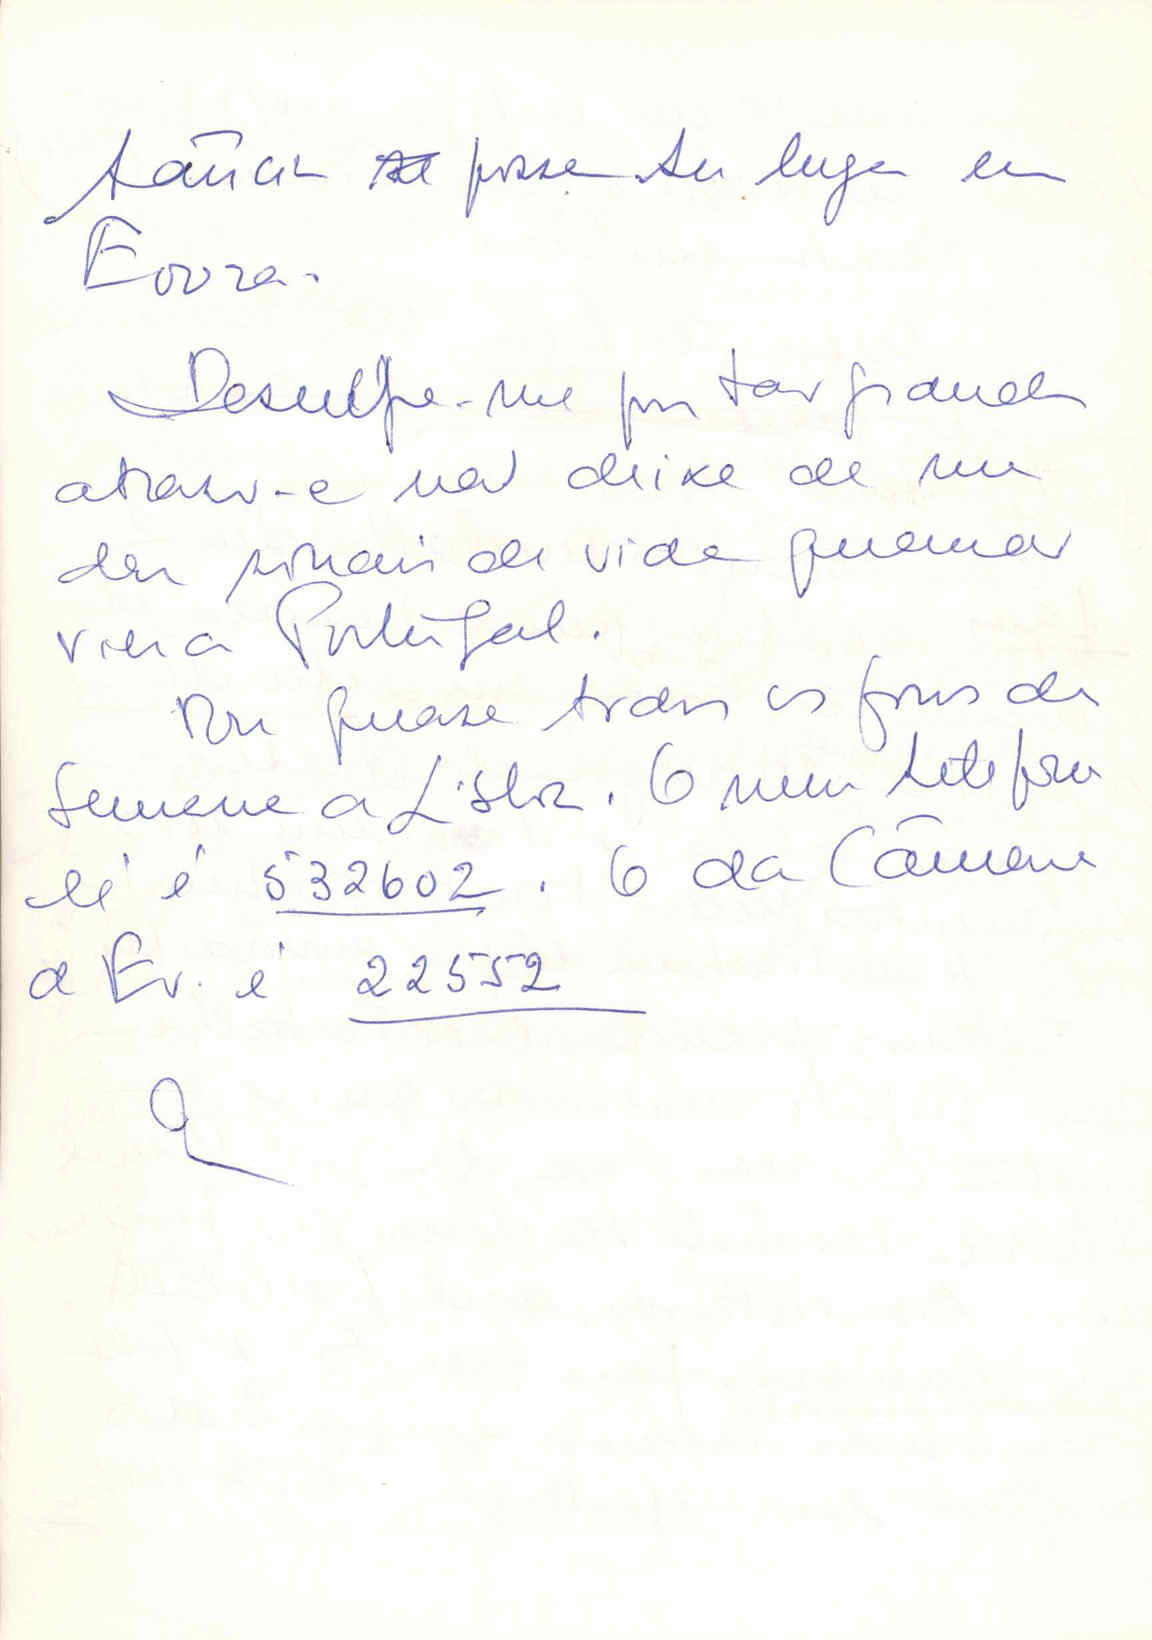 possa ter lugar em
Évora.
Desculpe-me por tão grande
atraso - e não deixe de me
dar sinais de vida quando
vier a Portugal.
Vou quase todos os fins de
semana a Lisboa. O meu telefone
lá é 532602. O da Câmara
d Ev. é 22552